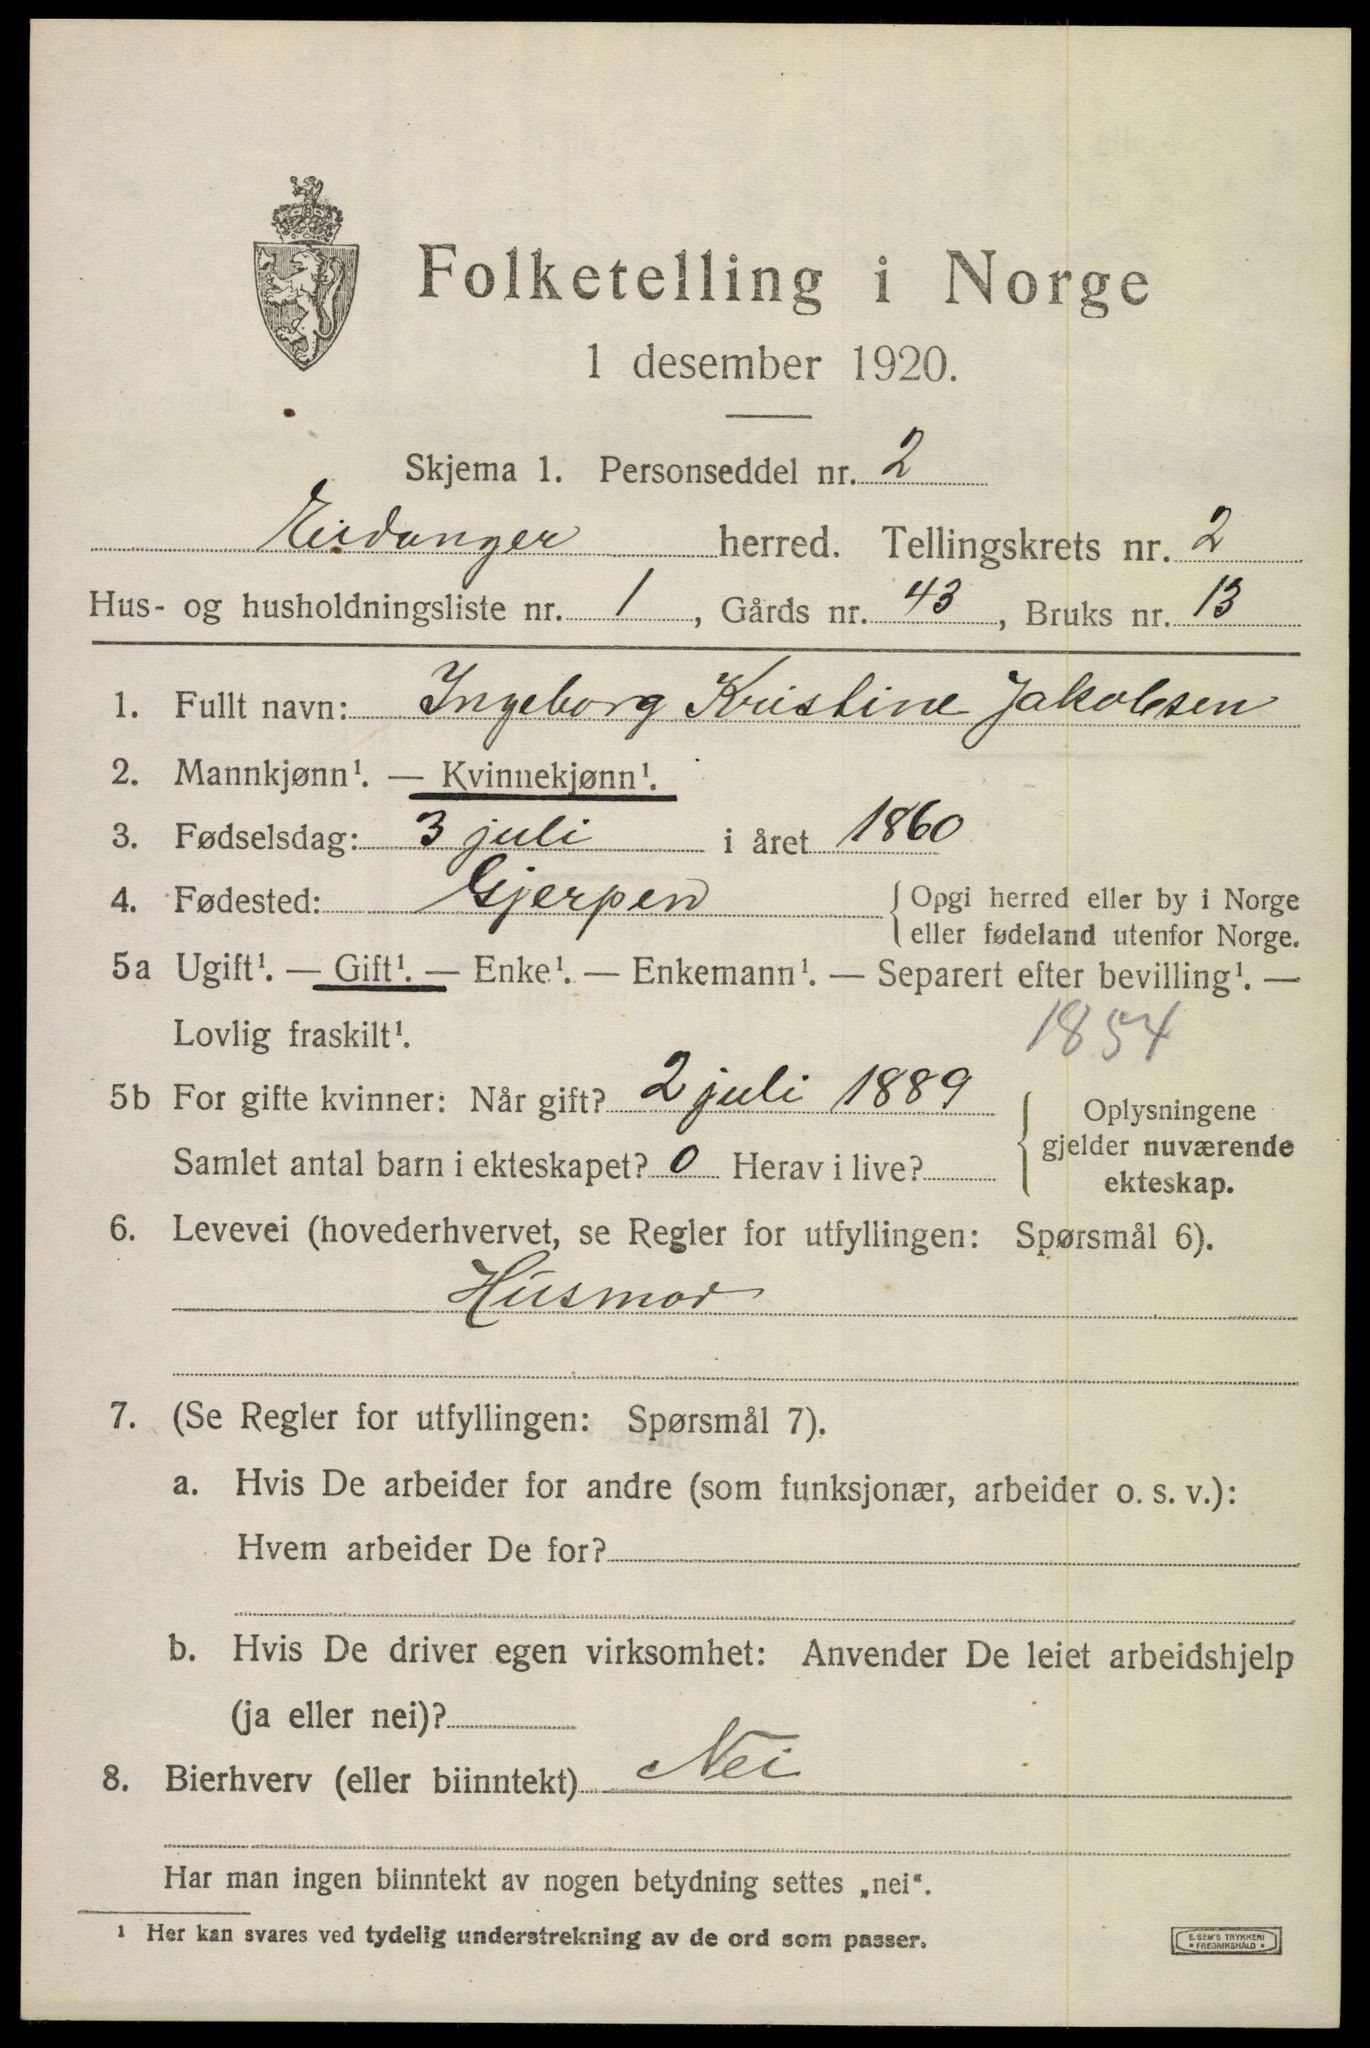 Folketelling i Norge
1 desember 1920.
Skjema 1. Personseddel nr. 2
Eidanger herred. Tellingskrets nr. 2
Hus- og husholdningsliste nr. 1, Gårds nr. 43, Bruks nr. 13
1. Fullt navn: Ingeborg Kristine Jakobsen
2. Mannkjønn¹. — Kvinnekjønn¹.
3. Fødselsdag: 3 juli i året 1860
4. Fødested: Gjerpen { Opgi herred eller by i Norge
eller fødeland utenfor Norge.
5a Ugift¹. — Gift¹. — Enke¹. — Enkemann¹. — Separert efter bevilling¹. —
Lovlig fraskilt¹.
1854
5b For gifte kvinner: Når gift? 2 juli 1889
Samlet antal barn i ekteskapet? 0 Herav i live?
{ Oplysningene
gjelder nuværende
ekteskap.
6. Levevei (hovederhvervet, se Regler for utfyllingen: Spørsmål 6).
Husmor
7. (Se Regler for utfyllingen: Spørsmål 7).
a. Hvis De arbeider for andre (som funksjonær, arbeider o. s. v.):
Hvem arbeider De for?
b. Hvis De driver egen virksomhet: Anvender De leiet arbeidshjelp
(ja eller nei)?
8. Bierhverv (eller biinntekt) Nei
Har man ingen biinntekt av nogen betydning settes „nei“.
¹ Her kan svares ved tydelig understrekning av de ord som passer.
E. SEM'S TRYKKERI
• FREDRIKSHALD •